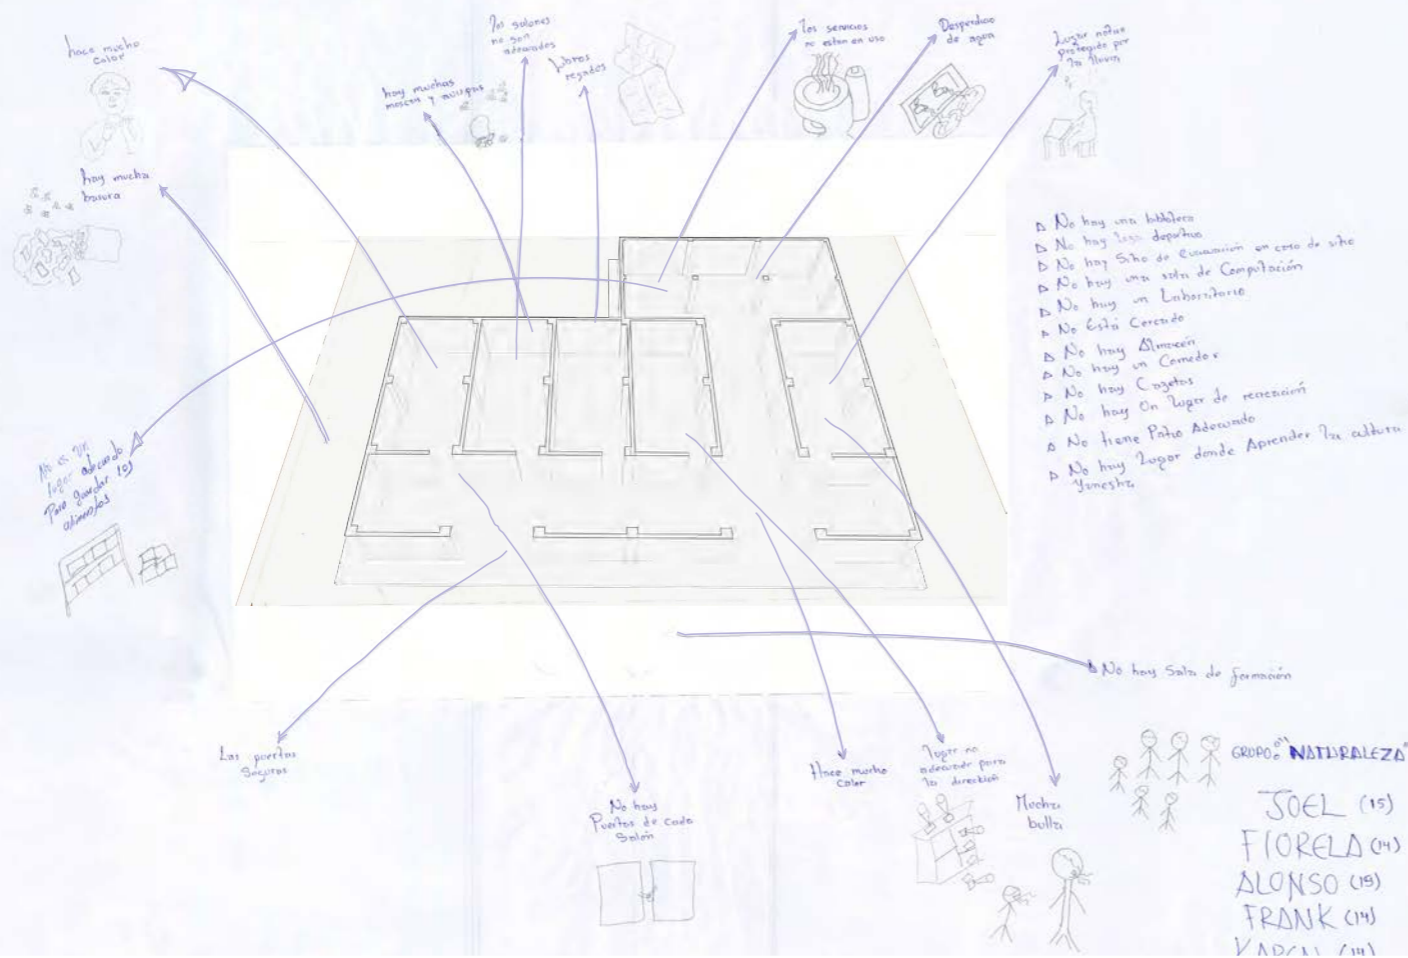 hace mucho
calor
hay mucha
basura
hay muchas
moscas y avispas
los salones
no son
adecuados
Libros
regados
los servicios
no estan en uso
Desperdicio
de agua
Lugar
protegido por
la lluvia
▷ No hay una biblioteca
▷ No hay losa deportiva
▷ No hay Sitio de Evacuación en caso de
▷ No hay una sala de Computación
▷ No hay un Laboratorio
▷ No Está Cercado
▷ No hay Almacén
▷ No hay un Comedor
▷ No hay
▷ No hay Un lugar de recreación
▷ No tiene Patio Adecuado
▷ No hay Lugar donde Aprender la cultura
Yanesha
No es un
lugar adecuado
Para guardar los
alimentos
▷ No hay Sala de formación
Las puertas
Seguras
No hay
Puertas de cada
Salón
Hace mucho
calor
lugar no
adecuado para
la dirección
Mucha
bulla
GRUPO: "NATURALEZA"
JOEL (15)
FIORELA (14)
ALONSO (15)
FRANK (14)